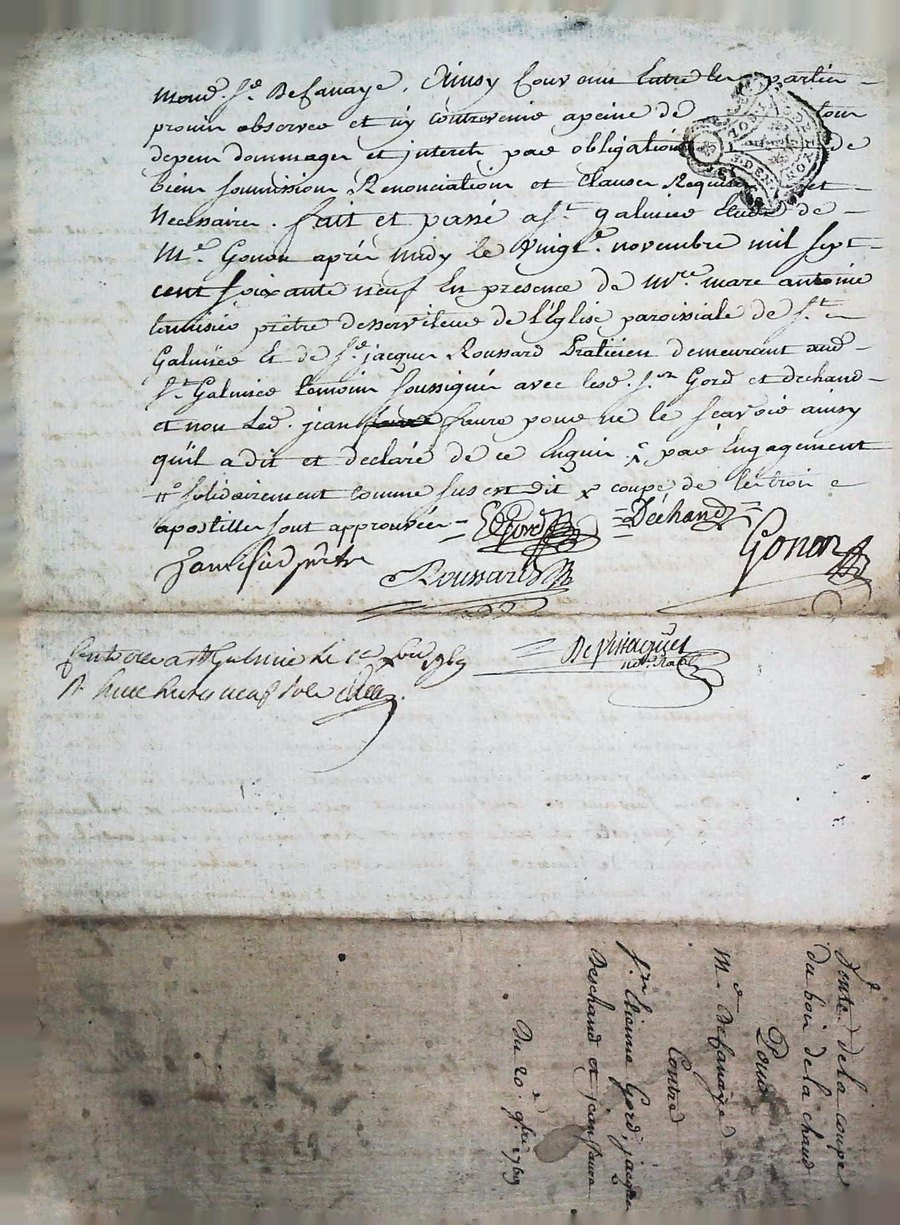 mond. Sr. Defavaye, Ainsy Convenu Entre les parties
promis observer et n'y contrevenir apeine de tous
depens dommages et interets par obligation de
biens soumissions Renonciations et Clauses Requises et
Necessaires. fait et passé a St. galmier Etude de
Me. Gonon aprés midy le vingte. novembre mil sept
cent soixante neuf En presence de mre. marc antoine
prêtre desserviteur de l'Eglise paroissiale de St.
Galmier Et de Sr. jacques Roussard Praticien demeurant aud.
St. Galmier temoins soussignés avec lesd. Srs. Gord et dechand
et non Led. jean faure pour ne le scavoir ainsy
quil a dit et declaré de ce Enquis x par Engagement
solidairement comme sus est dit x coupe de les trois
apostilles sont approuvées
EGord Déchand
Gonon
prêtre
Roussard
Controllé a St Galmier Le 1er Xbre 1769
R. huit livres neuf sols
not. Royal
Vente de la coupe
du bois de la chaud
Pour
Mr. Defavaye
Contre
Srs. Etienne Gord, jacques
Deschand et jean faure
Du 20e. 9bre 1769